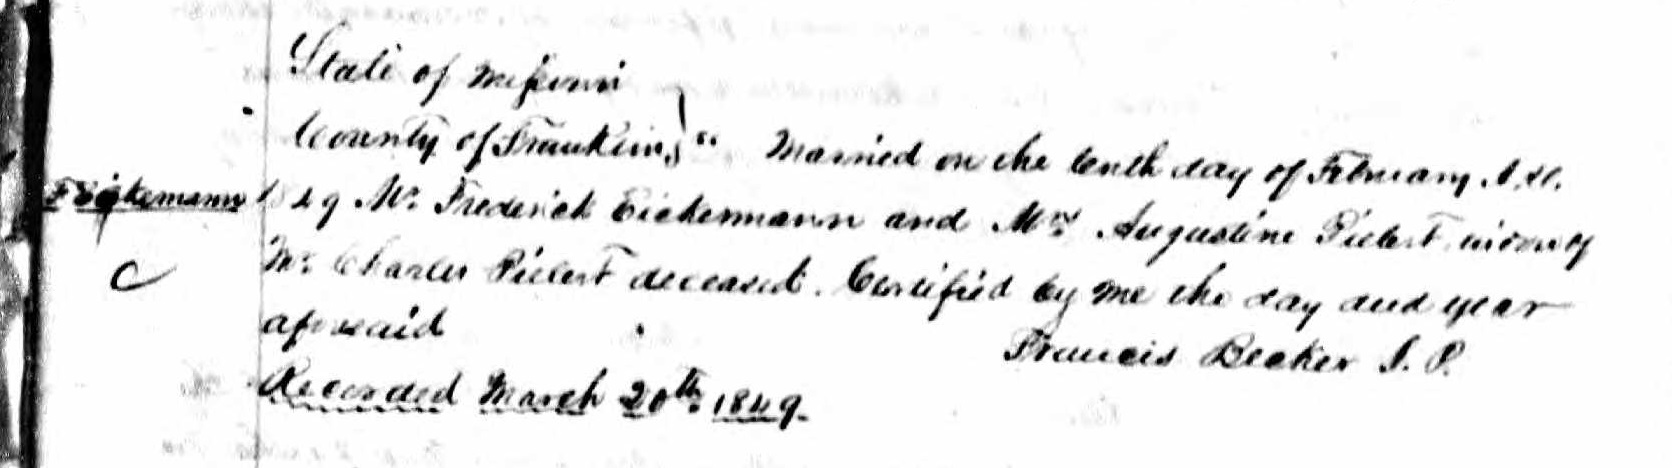 State of Missouri
County of Franklin } ss Married on the tenth day of February A.D.
F Eickemann
1849 Mr. Frederick Eickermann and Mrs. Augustine Piebert widow of
Mr. Charles Piebert deceased. Certified by me the day and year
C
aforesaid
Francis Becker J. P.
Recorded March 20th 1849.